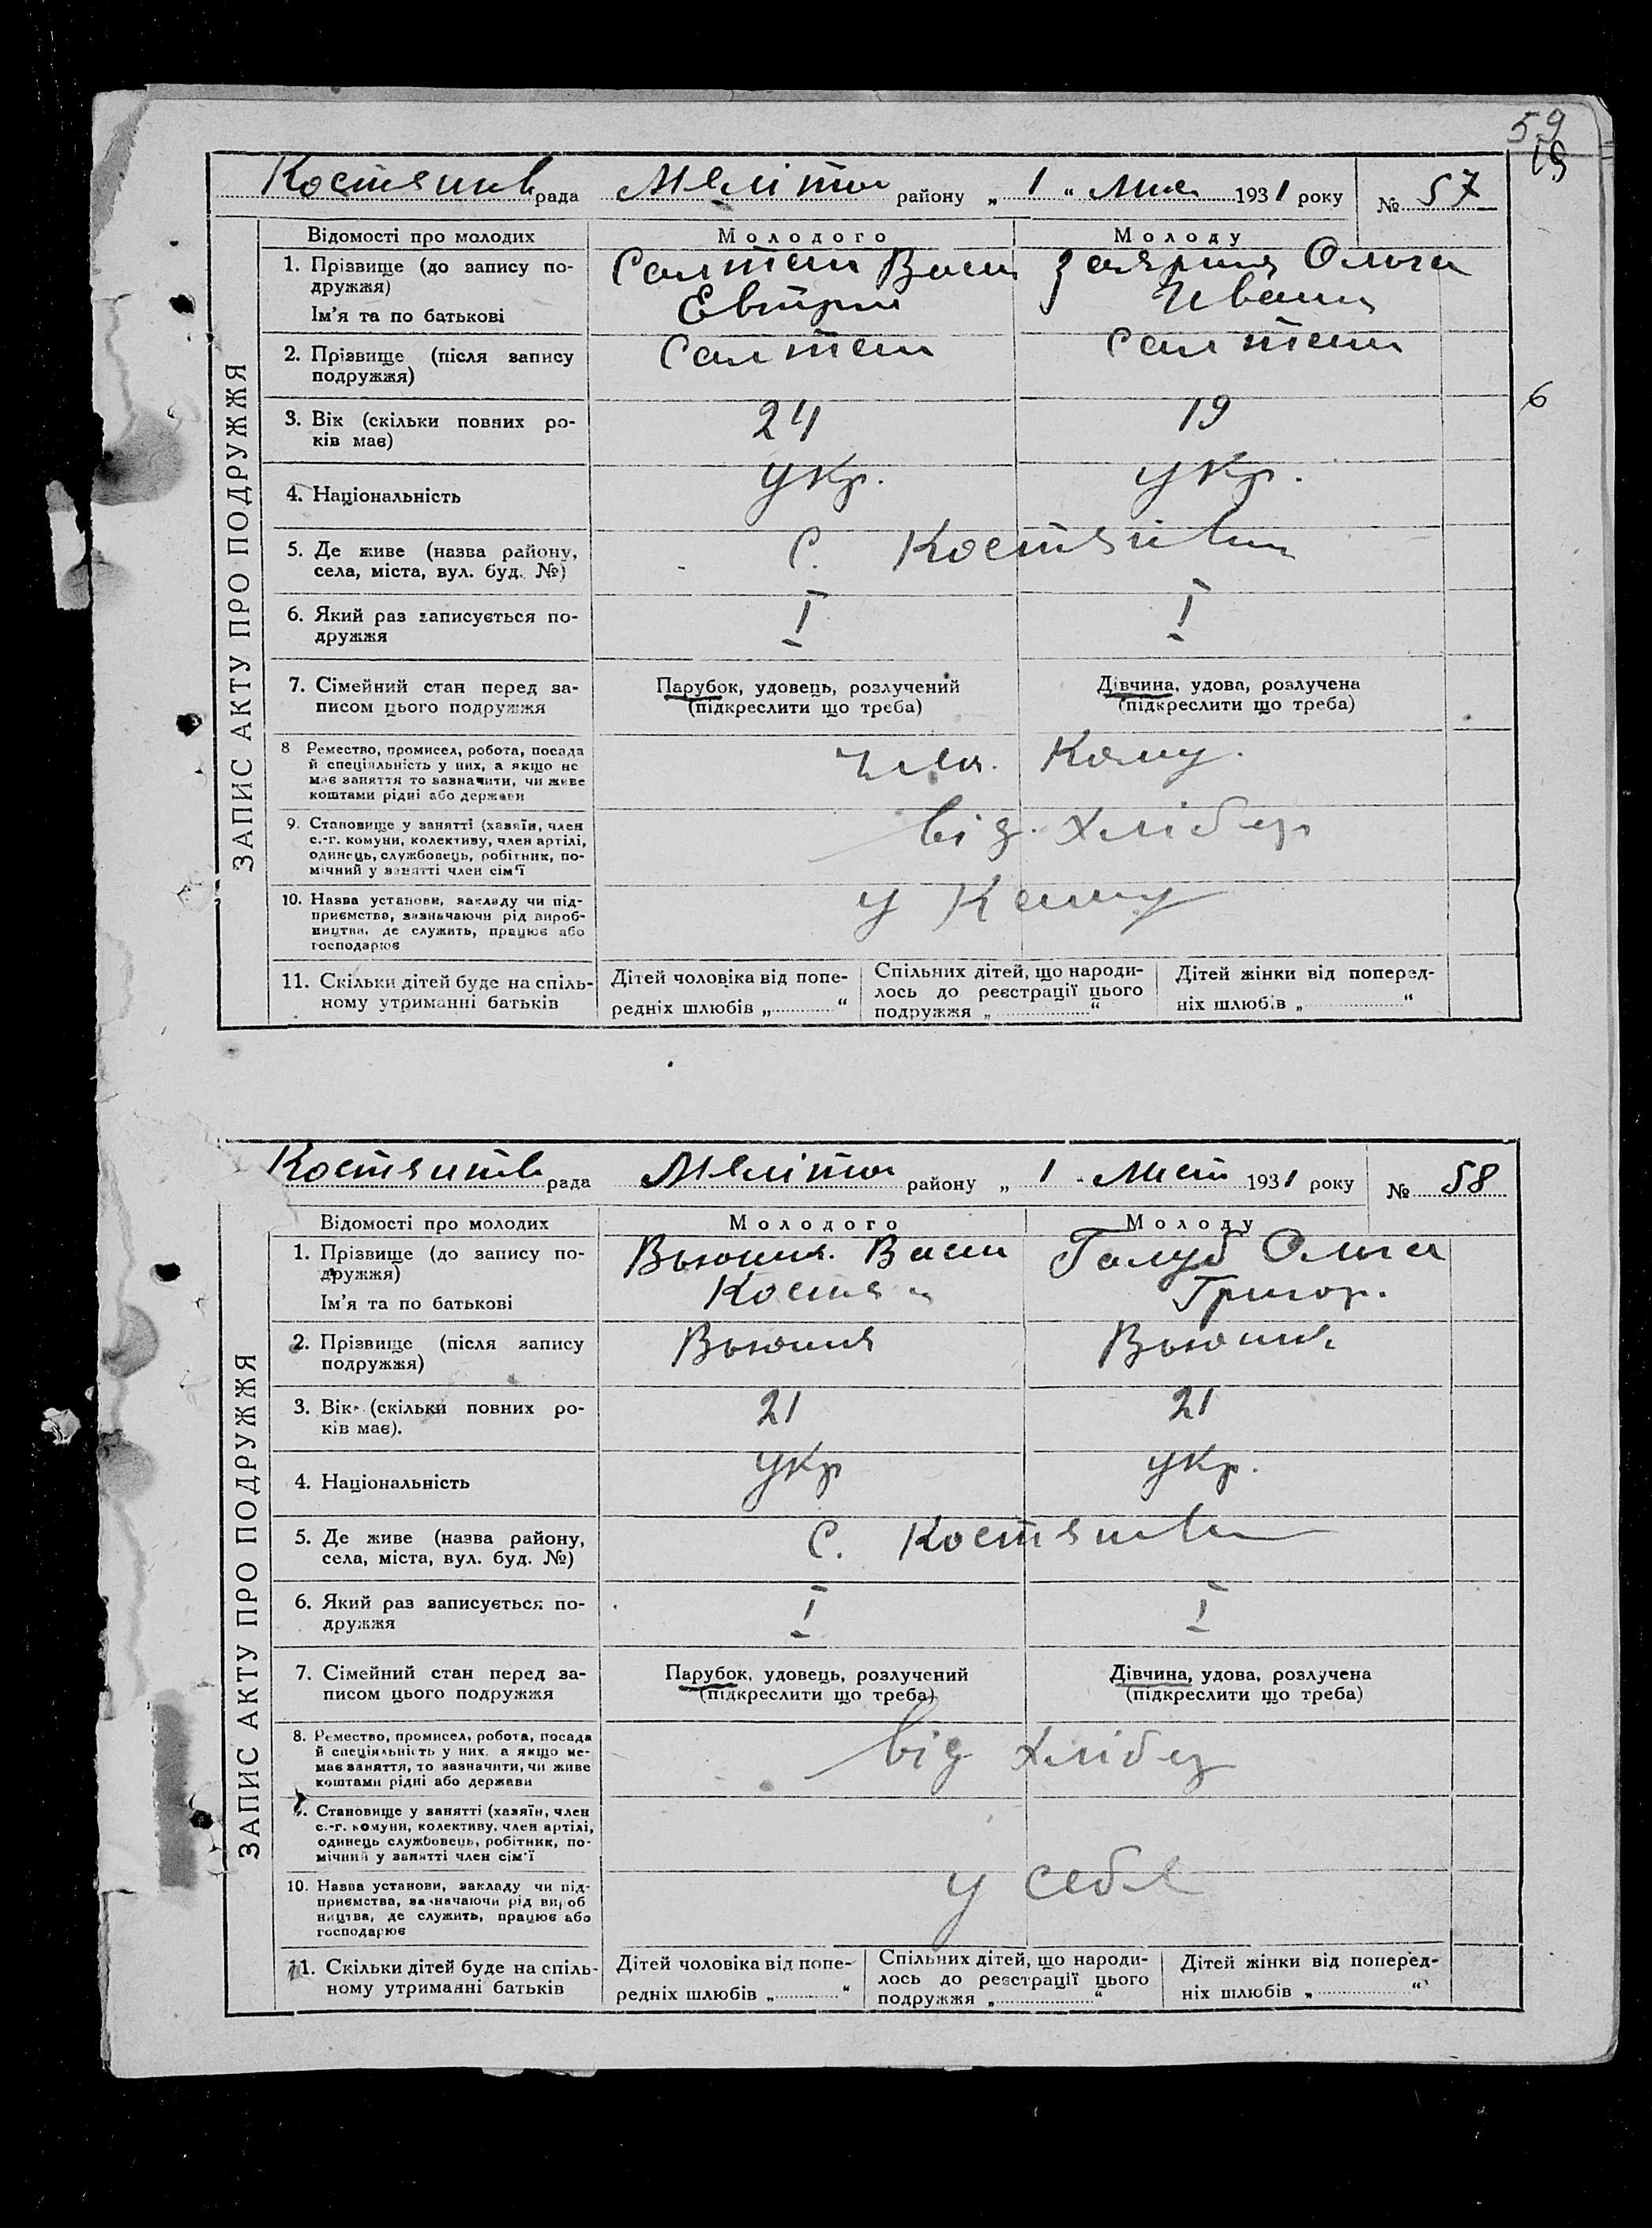 59
19
рада Меліто району „ 1 “ 1931 року № 57
ЗАПИС АКТУ ПРО ПОДРУЖЖЯ
Відомості про молодих Молодого Молоду
1. Прізвище (до запису по-
дружжя)
Ім'я та по батькові
Ольга
2. Прізвище (після запису
подружжя)
3. Вік (скільки повних ро-
ків має)
24 19
6
4. Національність
укр. укр.
5. Де живе (назва району,
села, міста, вул. буд. №)
с.
6. Який раз записується по-
дружжя
I I
7. Сімейний стан перед за-
писом цього подружжя
Парубок, удовець, розлучений
(підкреслити що треба)
Дівчина, удова, розлучена
(підкреслити що треба)
8 Ремество, промисел, робота, посада
й спеціяльність у них, а якщо не
має заняття то зазначити, чи живе
коштами рідні або держави
Кому.
9. Становище у занятті (хазяїн, член
с.-г. комуни, колективу, член артілі,
одинець, службовець, робітник, по-
мічний у занятті член сім'ї
від. хлібор
10. Назва установи, закладу чи під-
приємства, зазначаючи рід вироб-
ництва, де служить, працює або
господарює
у
11. Скільки дітей буде на спіль-
ному утриманні батьків
Дітей чоловіка від попе-
редніх шлюбів „ “
Спільних дітей, що народи-
лось до реєстрації цього
подружжя „ “
Дітей жінки від поперед-
ніх шлюбів „ “
рада Меліто району „ 1 “ Лист 1931 року № 58
ЗАПИС АКТУ ПРО ПОДРУЖЖЯ
Відомості про молодих Молодого Молоду
1. Прізвище (до запису по-
дружжя)
Ім'я та по батькові
Голуб Ольга
Григор.
2. Прізвище (після запису
подружжя)
3. Вік (скільки повних ро-
ків має).
21 21
4. Національність
укр укр.
5. Де живе (назва району,
села, міста, вул. буд. №)
с.
6. Який раз записується по-
дружжя
I I
7. Сімейний стан перед за-
писом цього подружжя
Парубок, удовець, розлучений
(підкреслити що треба)
Дівчина, удова, розлучена
(підкреслити що треба)
8. Ремество, промисел, робота, посада
й спеціяльність у них, а якщо не-
має заняття, то зазначити, чи живе
коштами рідні або держави
від хлібор
9. Становище у занятті (хазяїн, член
с.-г. комуни, колективу, член артілі,
одинець службовець, робітник, по-
мічний у занятті член сім'ї
10. Назва установи, закладу чи під-
приємства, зазначаючи рід вироб
ництва, де служить, працює або
господарює
у себе
11. Скільки дітей буде на спіль-
ному утриманні батьків
Дітей чоловіка від попе-
редніх шлюбів „ “
Спільних дітей, що народи-
лось до реєстрації цього
подружжя „ “
Дітей жінки від поперед-
ніх шлюбів „ “